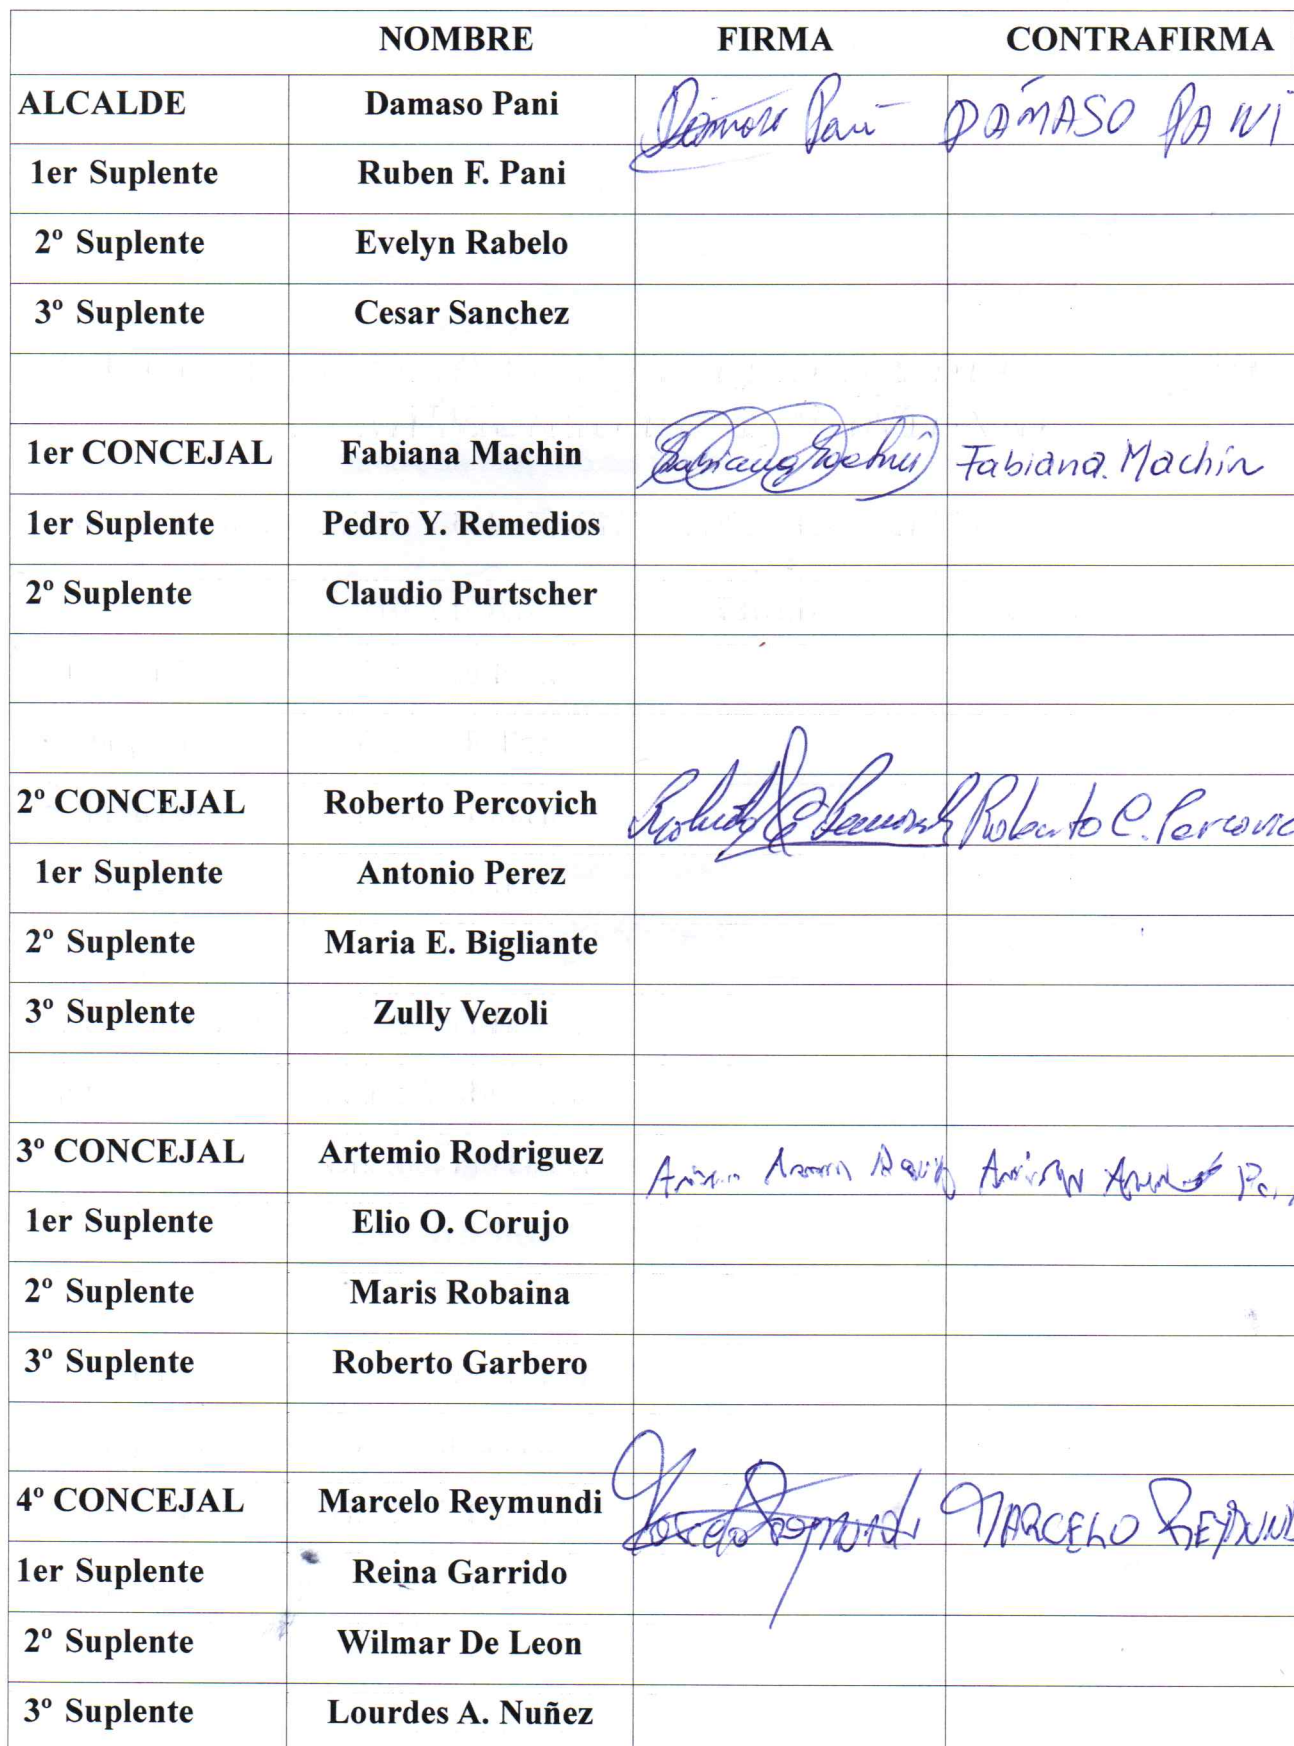 NOMBRE FIRMA CONTRAFIRMA
ALCALDE Damaso Pani Damaso Pani DAMASO PANI
1er Suplente Ruben F. Pani
2º Suplente Evelyn Rabelo
3º Suplente Cesar Sanchez
1er CONCEJAL Fabiana Machin Fabiana Machin Fabiana Machin
1er Suplente Pedro Y. Remedios
2º Suplente Claudio Purtscher
2º CONCEJAL Roberto Percovich Roberto C. Roberto C. Percovic
1er Suplente Antonio Perez
2º Suplente Maria E. Bigliante
3º Suplente Zully Vezoli
3º CONCEJAL Artemio Rodriguez
1er Suplente Elio O. Corujo
2º Suplente Maris Robaina
3º Suplente Roberto Garbero
4º CONCEJAL Marcelo Reymundi Marcelo Reymundi MARCELO REYMUND
1er Suplente Reina Garrido
2º Suplente Wilmar De Leon
3º Suplente Lourdes A. Nuñez